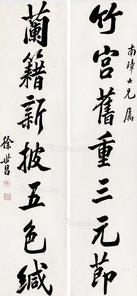 南璋大兄屬
竹宮舊重三元節
蘭籍新披五色緘
徐世昌